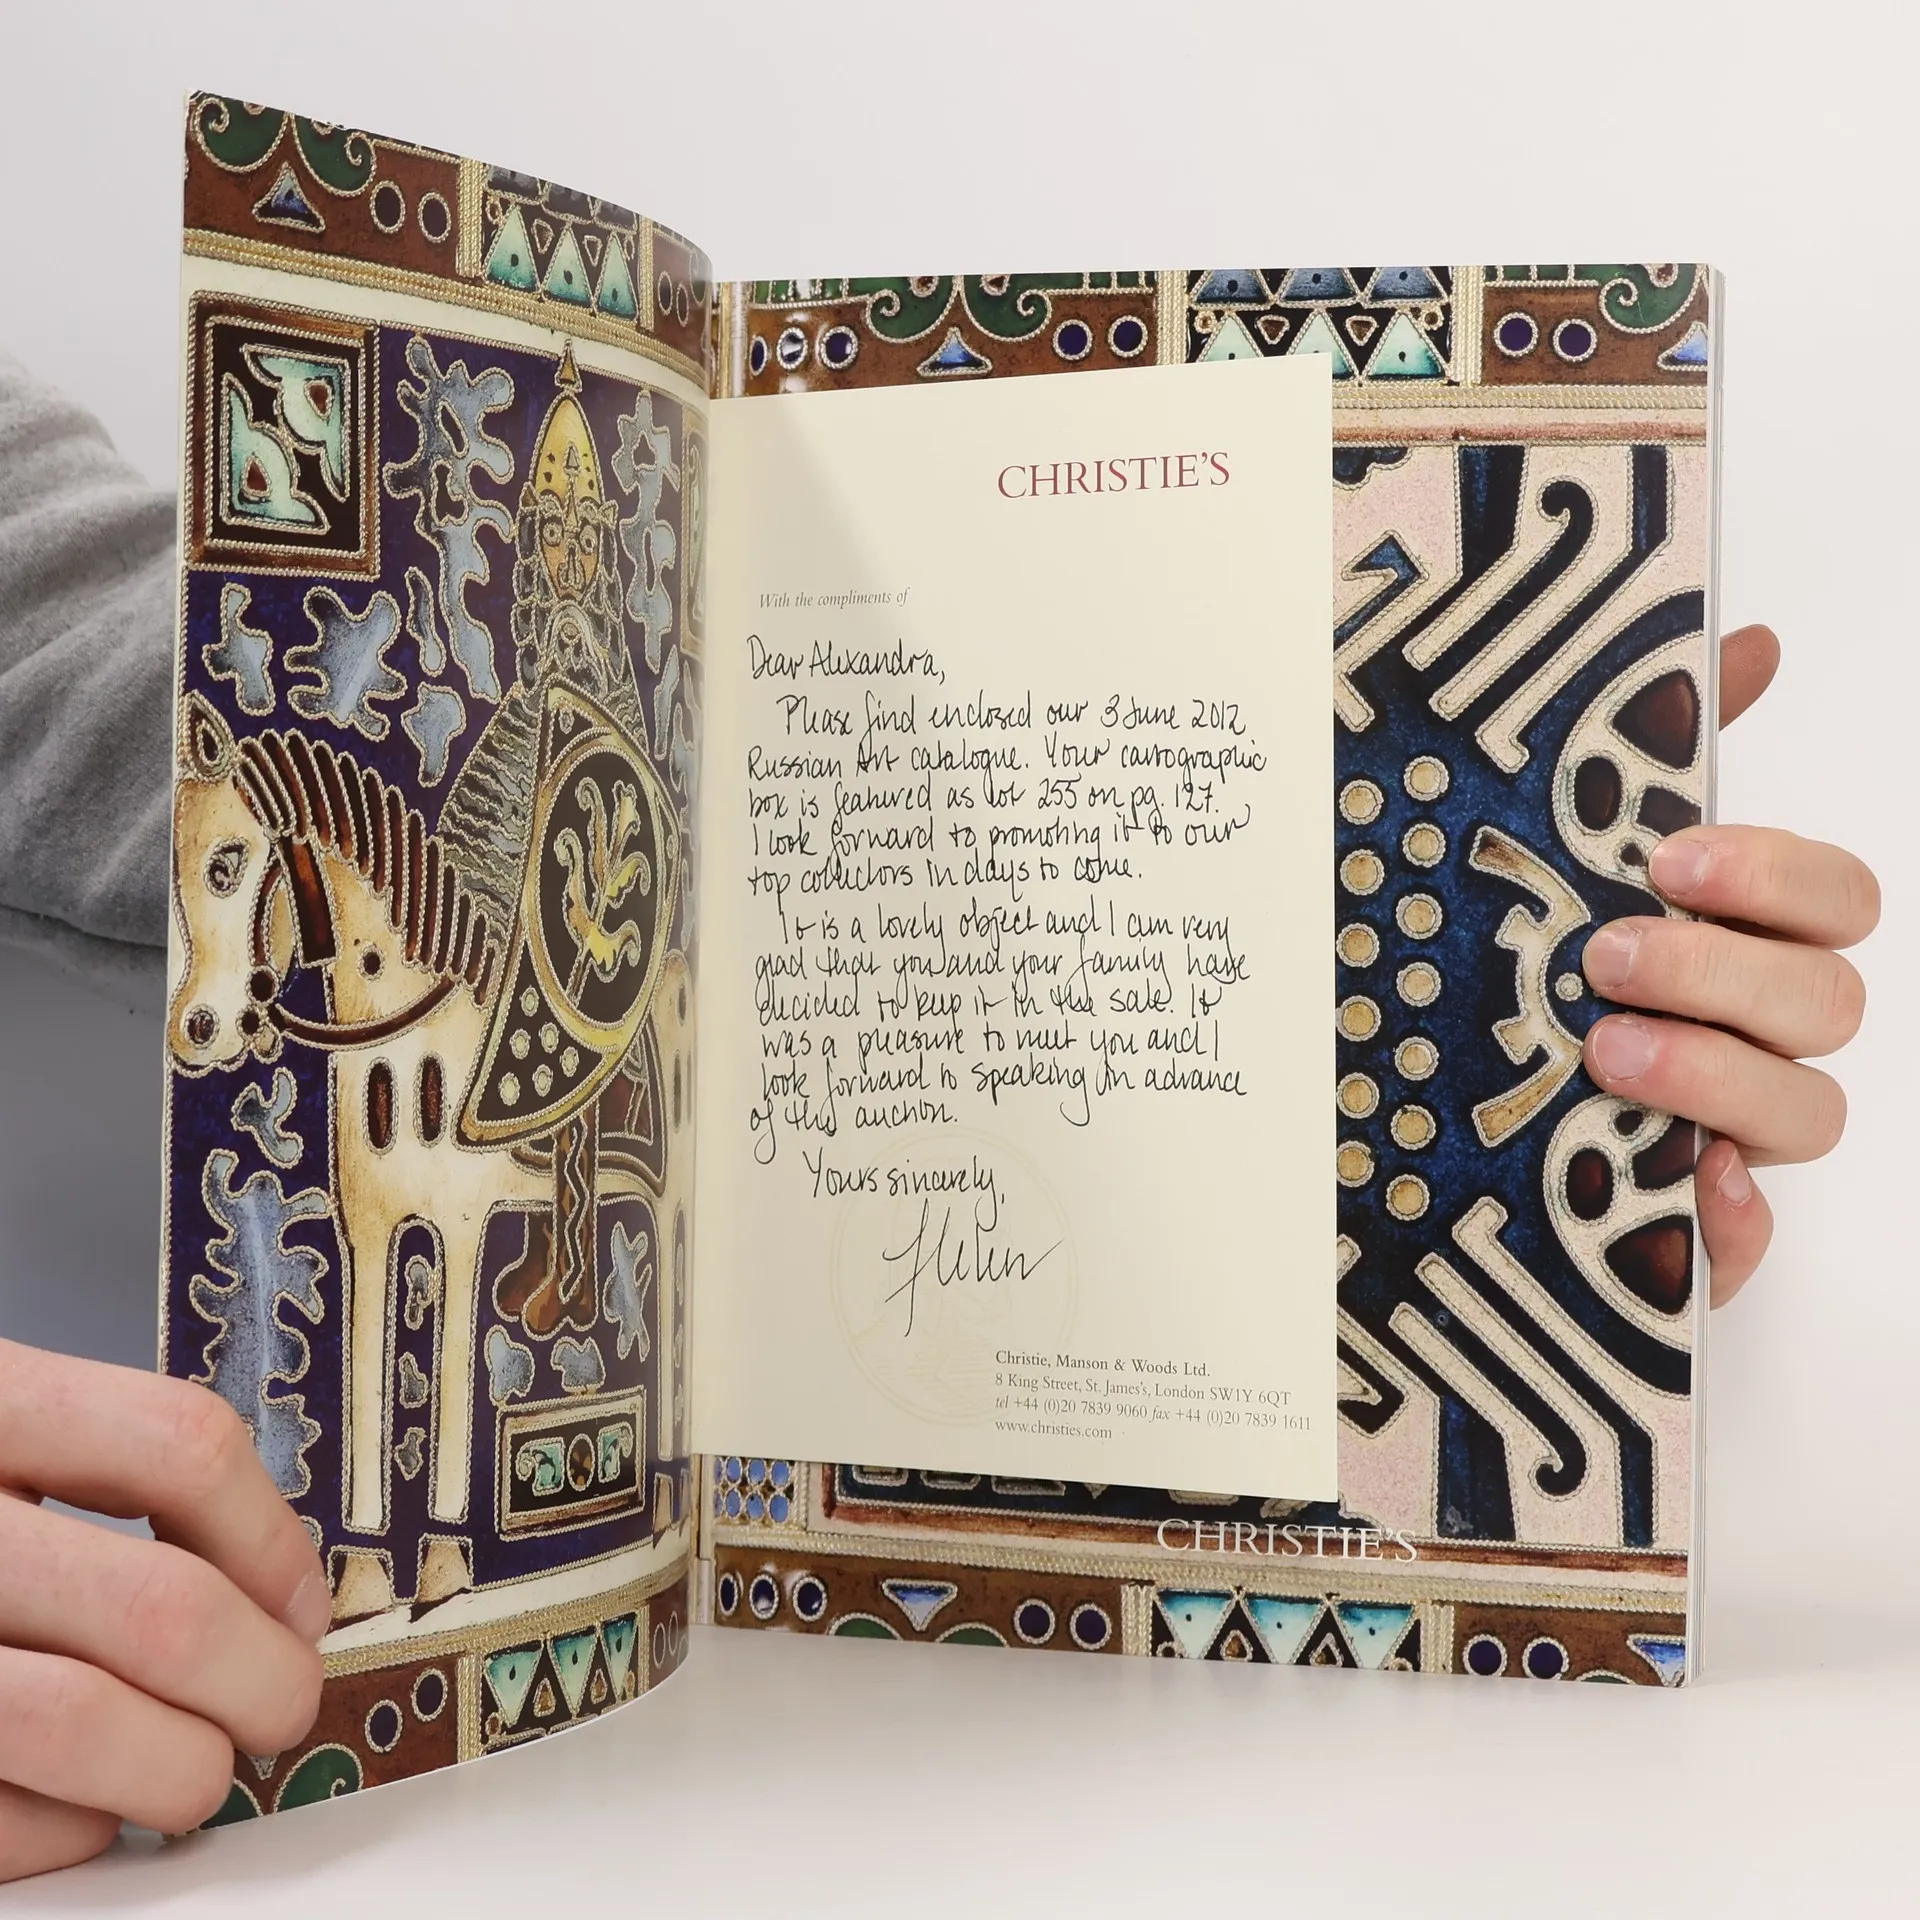 CHRISTIE'S
With the compliments of
Dear Alexandra,
Please find enclosed our 3 June 2012
Russian Art catalogue. Your cartographic
box is featured as lot 255 on pg. 127.
I look forward to promoting it to our
top collectors in days to come.
It is a lovely object and I am very
glad that you and your family have
decided to keep it in the sale. It
was a pleasure to meet you and I
look forward to speaking in advance
of the auction.
Yours sincerely,
Helen
Christie, Manson & Woods Ltd.
8 King Street, St. James's, London SW1Y 6QT
tel +44 (0)20 7839 9060 fax +44 (0)20 7839 1611
www.christies.com
CHRISTIE'S